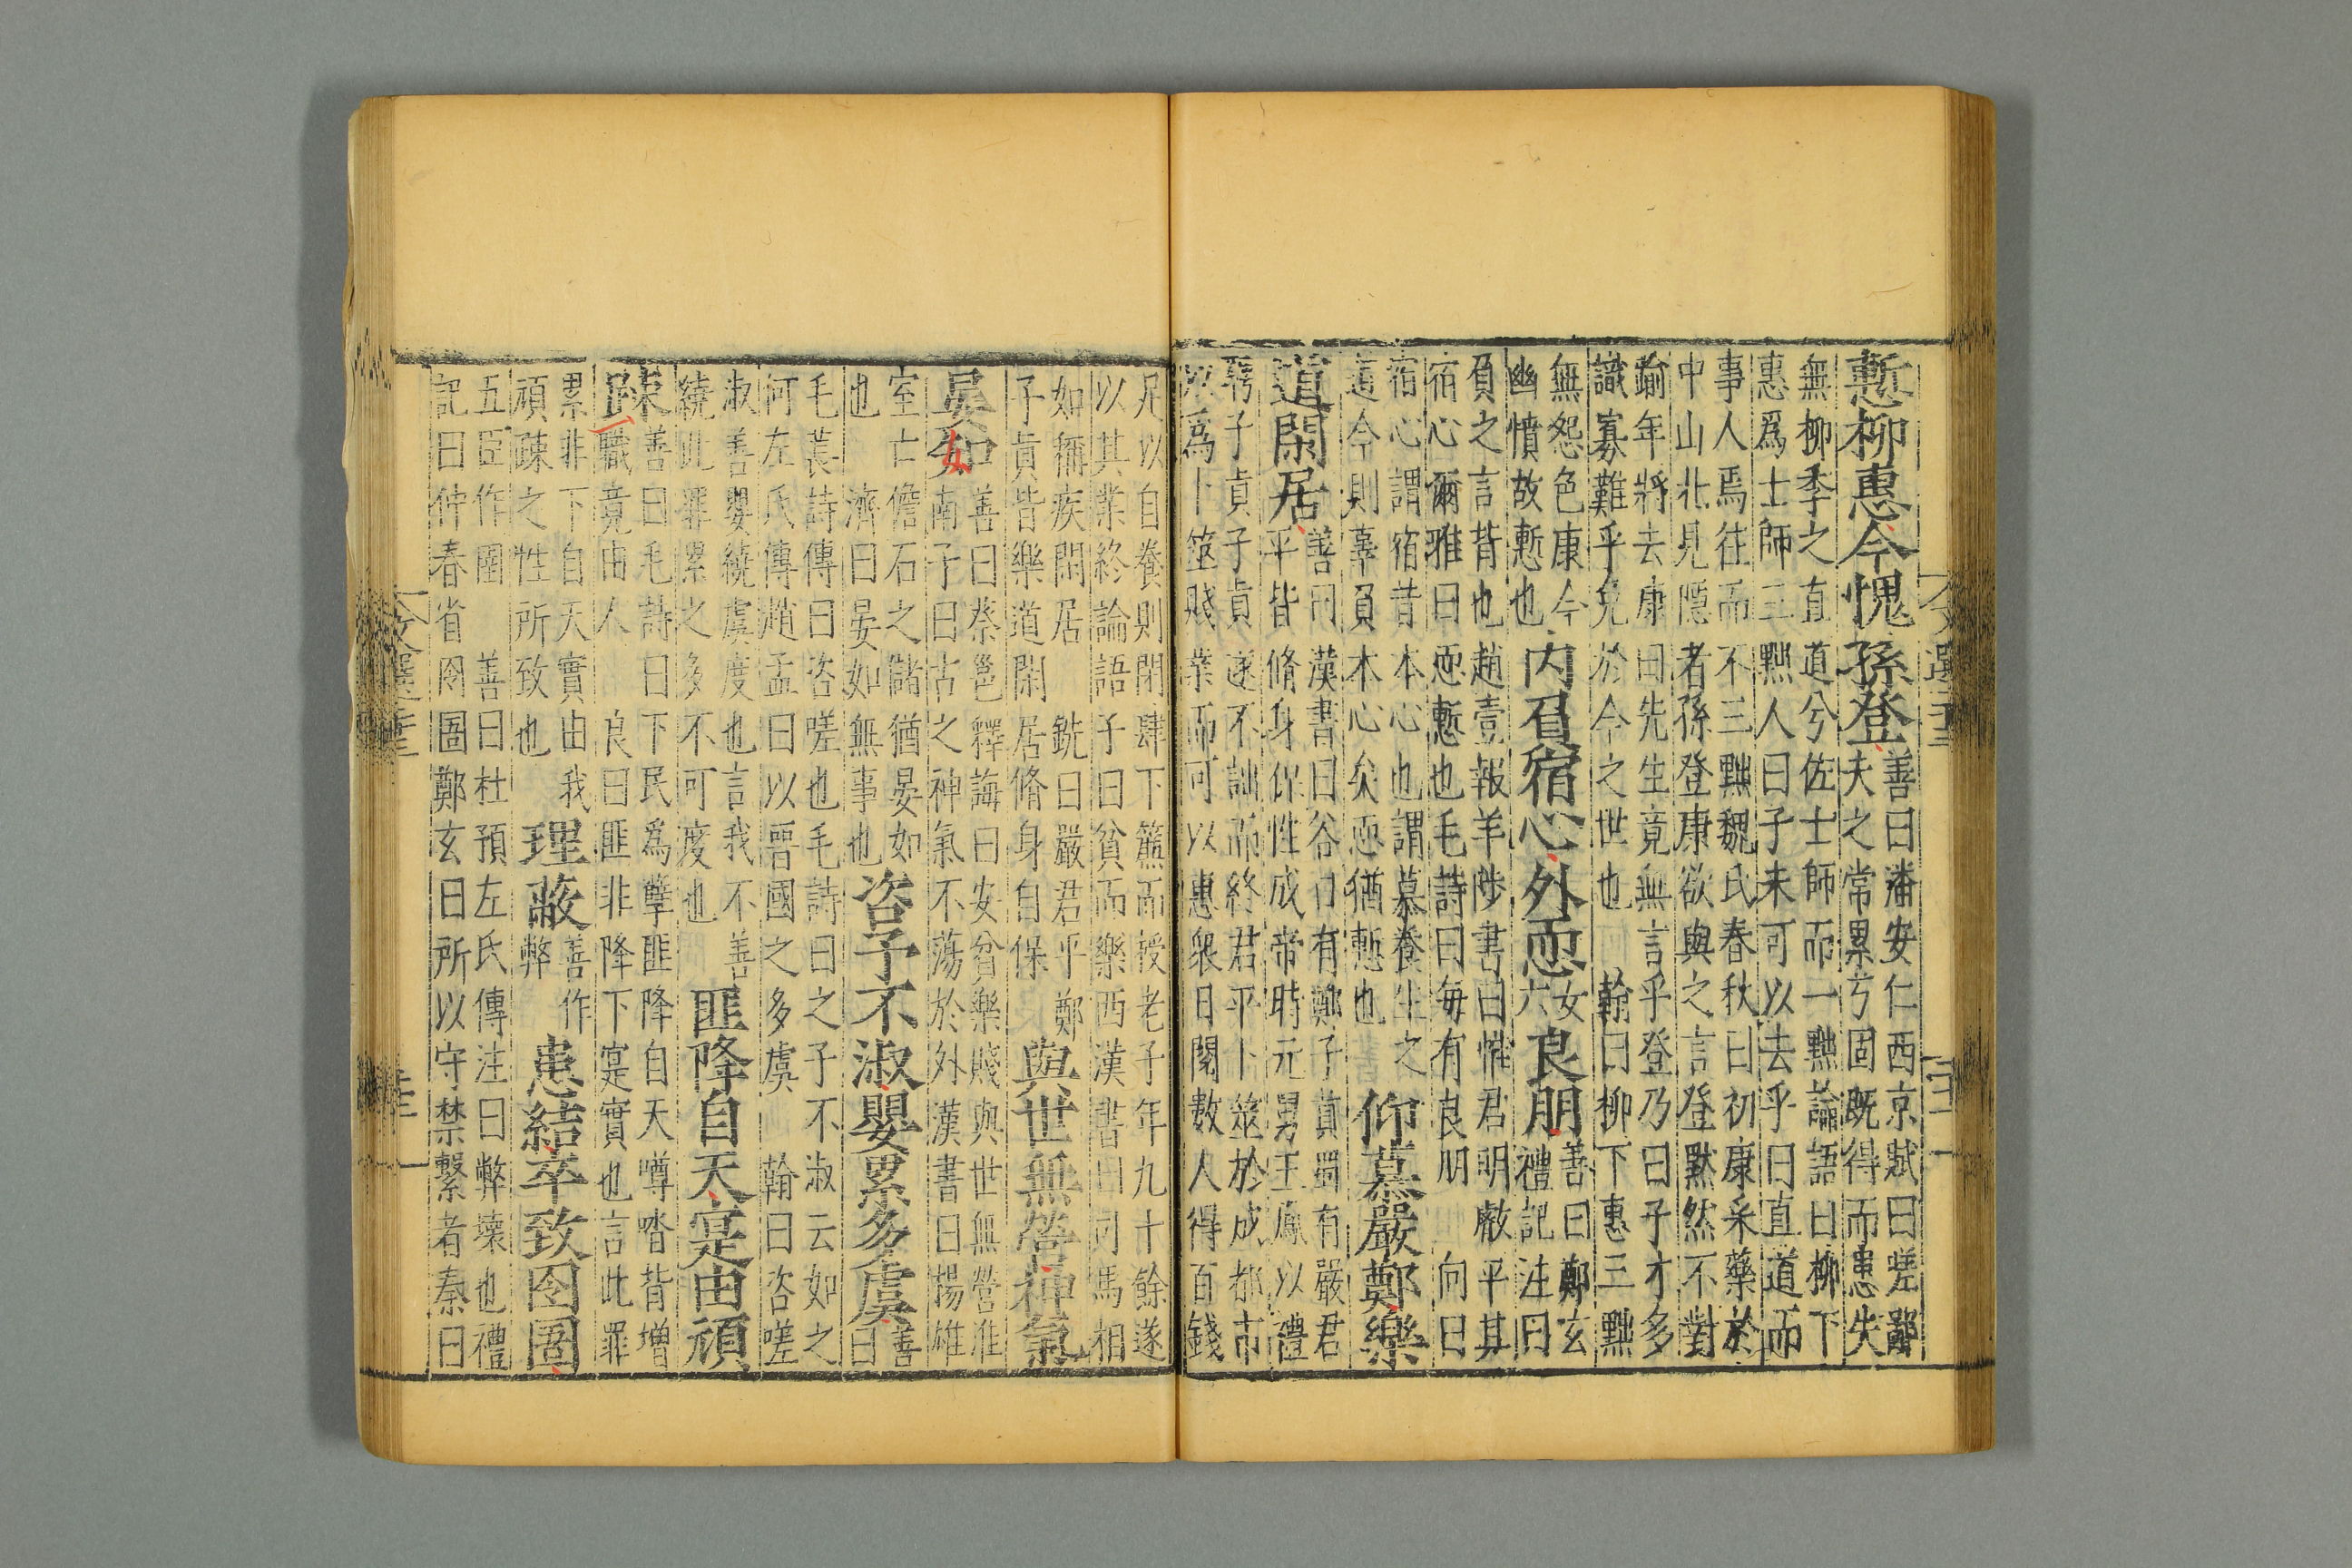 慙柳惠今愧孫登善曰潘安仁西京賦曰嗟鄙
夫之常累兮固既得而患失
無柳季之直道兮佐士師而一黜論語曰柳下
惠爲士師三黜人曰子未可以去乎曰直道而
事人焉往而不三黜魏氏春秋曰初康采藥於
中山北見隱者孫登康欲與之言登默然不對
踰年將去康曰先生竟無言乎登乃曰子才多
識寡難乎免於今之世也 翰曰柳下惠三黜
無怨色康今
幽憤故慙也
内負宿心外恧女六良朋善曰鄭玄
禮記注曰
負之言背也趙壹報羊陟書曰惟君明叡平其
宿心爾雅曰恧慙也毛詩曰每有良朋 向曰
宿心謂宿昔本心也謂慕養生之
道今則辜負本心矣恧猶慙也
仰慕嚴鄭樂
道閑居善曰漢書曰谷口有鄭子真蜀有嚴君
平皆脩身保性成帝時元舅王鳳以禮
聘子貞子貞遂不詘而終君平卜筮於成都市
以爲卜筮賤業而可以惠衆日閱數人得百錢
足以自養則閉肆下簾而授老子年九十餘遂
以其業終論語子曰貧而樂西漢書曰司馬相
如稱疾閑居 銑曰嚴君平鄭
子真皆樂道閑居脩身自保
與世無營神氣
晏如善曰蔡邕釋誨曰安貧樂賤與世無營淮
南子曰古之神氣不蕩於外漢書曰揚雄
室亡儋石之儲猶晏如
也 濟曰晏如無事也
咨予不淑嬰累多虞善
曰
毛萇詩傳曰咨嗟也毛詩曰之子不淑云如之
何左氏傳趙孟曰以晉國之多虞 翰曰咨嗟
淑善嬰繞虞度也言我不善
繞此罪累之多不可度也
匪降自天寔由頑
踈善曰毛詩曰下民爲孽匪降自天噂沓背增
職竟由人 良曰匪非降下寔實也言此罪
累非下自天實由我
頑疎之性所致也
理蔽善作
弊
患結卒致囹圄
五臣作圉 善曰杜預左氏傳注曰弊壞也禮
記曰仲春省囹圄鄭玄曰所以守禁繫者秦曰